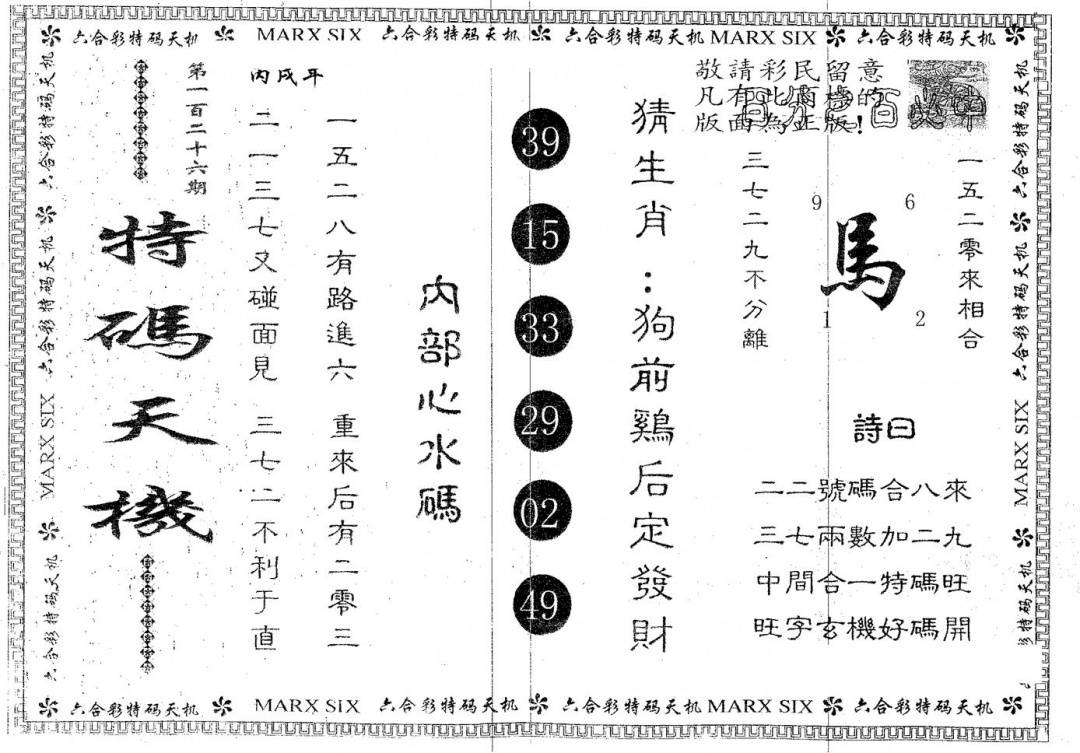 六合彩特码天机 MARX SIX 六合彩特码天机 六合彩特码天机 MARX SIX 六合彩特码天机
敬請彩民留意
凡有此商標的
版面為正版!
百分百必中
一五二零來相合
三七二九不分離
9 6
馬
1 2
詩曰
二二號碼合八來
三七兩數加二九
中間合一特碼旺
旺字玄機好碼開
猜生肖:狗前鷄后定發財
39
15
33
29
02
49
内部心水碼
一五二八有路進六 重來后有二零三
二一三七又碰面見 三七二不利于直
丙戌年
第一百二十六期
特碼天機
六合彩特码天机 六合彩特码天机 MARX SIX 六合彩特码天机
六合彩特码天机 六合彩特码天机 MARX SIX 彩特码天机
六合彩特码天机 MARX SIX 六合彩特码天机 六合彩特码天机 MARX SIX 六合彩特码天机